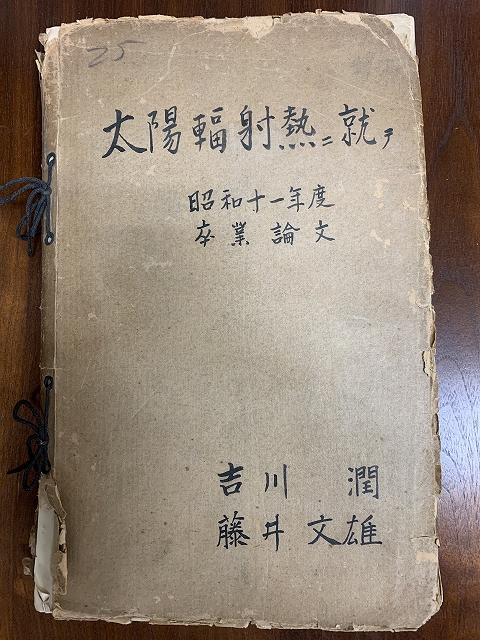 25
太陽輻射熱ニ就テ
昭和十一年度
卒業論文
吉川 潤
藤井文雄